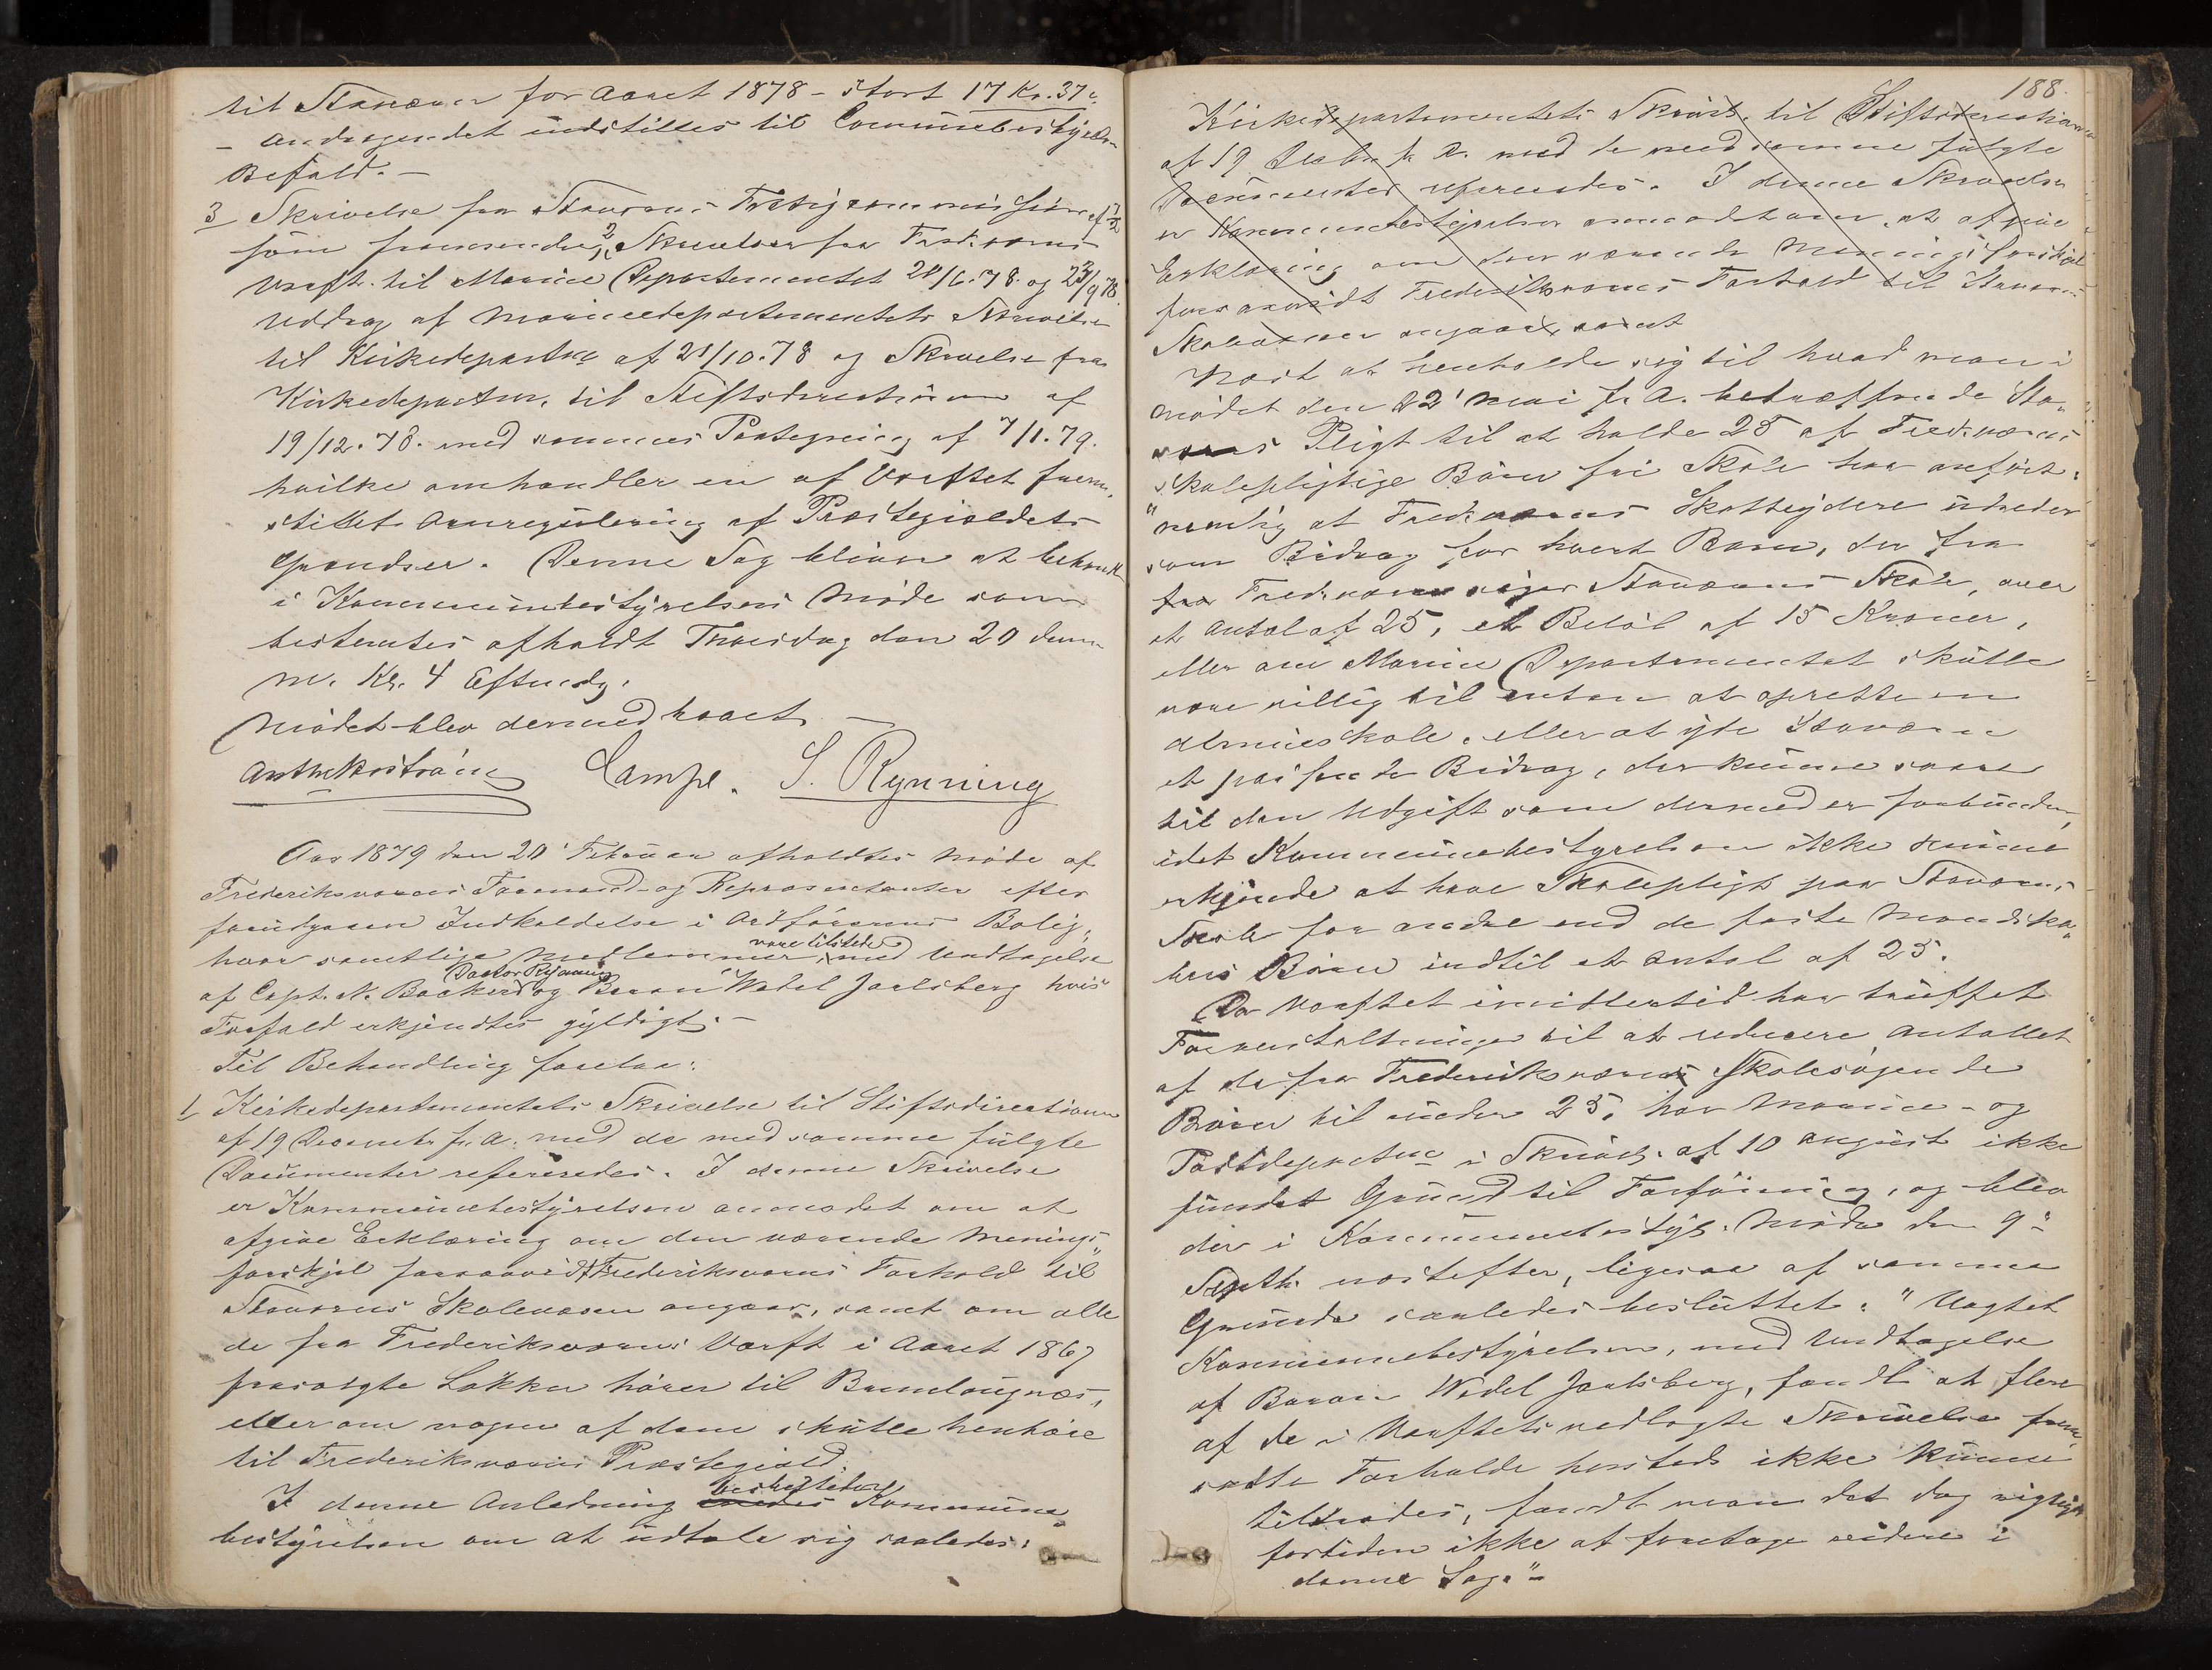 til Staværn for Aaret 1878 - stort 17 Kr. 37 ø.
- Andragendet indstilles til Communebestyrelsens
Bifald. -
3 Skrivelse fra Staværns Fattigcommission af
som fremsender 2 Skrivelser fra Fredr.værns
Værft til Marine Departementet 28/6.78. og 23/9 78.
Uddrag af Marinedepartementets Skrivelse
til Kirkedepartm. af 21/10.78 og Skrivelse fra
Kirkedepartm. til Stiftsdirectionen af
19/12.78. med sammes Paategning af 7/1.79.
hvilke omhandler en af Værftet frem-
stillet Omregulering af Præstegjeldets
Grændser. Denne Sag bliver at behandle
i Kommunebestyrelsens Møde som
bestemtes afholdt Thorsdag den 20 denne
M. Kl. 4 Eftmdg.
Mødet blev dermed hævet. -
Lampe. S. Rynning
Aar 1879 den 20' Februar afholdtes Møde af
Frederiksværns Formænd- og Repræsentanter efter
forudgaaen Indkaldelse i Ordførerens Bolig,
hvor samtlige Medlemmer vare tilstede med Undtagelse
af Capt. N. Backer, Doctor Rynning og Baron Wedel Jarlsberg hvis
Forfald erkjendtes gyldigt. -
Til Behandling forelaa:
1 Kirkedepartementets Skrivelse til Stiftsdirectionen
af 19 Decembr f. A. med de med samme fulgte
Documenter refereredes. I denne Skrivelse
er Kommunebestyrelsen anmodet om at
afgive Erklæring om den værende Menings-
forskjel forsaavidt Frederiksværns Forhold til
Staværns Skolevæsen angaar, samt om alle
de fra Frederiksværns Værft i Aaret 1867
frasolgte Løkker hører til Brunlaugnæs,
eller om nogen af dem skulle henhøre
til Frederiksværns Præstegjeld.
I denne Anledning besluttede Kommune-
bestyrelsen om at udtale sig saaledes:
188.
Kirkedepartementets Skriv. til Stiftsdirectionen
af 19 Decbr f. A. med de med samme fulgte
Documenter refereredes. I denne Skrivelse
er Kommunebestyrelsen anmodet om, at afgive
Erklæring om den værende Meningsforskjel
forsaavidt Frederiksværns Forhold til Staværns
Skolevæsen angaar, samt
Næst at henholde sig til hvad man i
Mødet den 22' Mai f. A. betræffende Sta-
værns Pligt til at holde 25 af Fredr.værns
skolepligtige Børn fri Skole har anført,
"nemlig at Fredr.værns Skatteydere udreder
som Bidrag for hvert Barn, der fra
fra Fredr.værn søger Staværns Skole, over
et Antal af 25, et Beløb af 15 Kroner,
eller om Marine Departementet skulle
være villig til enten at oprette en
Almueskole, eller at yde Staværn
et passende Bidrag, der kunne svare
til den Udgift som dermed er forbunden,
idet Kommunebestyrelsen ikke kunne
erkjende at have Skolepligt paa Staværns
Skole for andre end de faste Mandska-
bers Børn indtil et Antal af 25.
Da Værftet imidlertid har truffet
Foranstaltninger til at reducere Antallet
af de fra Frederiksværn Skolesøgende
Børn til under 25, har Marine- og
Postdepartm. i Skriv. af 10 August ikke
fundet Grund til Forføining, og blev
der i Kommunebestyr. Møde den 9de
Septbr. næstefter, ligesaa af samme
Grunde saaledes besluttet: "Uagtet
Kommunebestyrelsen, med Undtagelse
af Baron Wedel Jarlsberg, fandt at flere
af de i Værftets vedlagte Skrivelse frem-
satte Forholde hersteds ikke kunne
tiltrædes, fandt man det dog rigtigst
fortiden ikke at foretage videre i
denne Sag." -